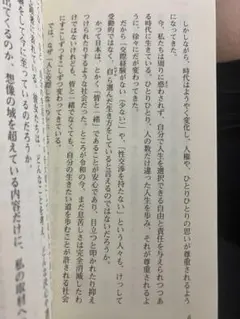 しかしながら、時代はようやく変化し、人権や、ひとりひとりの思いが尊重されるよう
になってきた。
今、私たちは周りに惑わされず、自分で人生を選択できる自由と責任を与えられつつあ
る時代に生きている。ひとりひとり、人の数だけ違った人生を歩み、それが尊重されるよ
うに、徐々にだが変わってきた。
だから「交際経験がない（少ない）」や、「性交渉を持たない」という人々も、けっして
受動的ではなく、自ら選んだ生き方をしていると言えるのではないだろうか。
かつて日本は、とかく「皆と一緒」であることが安心であり、目立つと叩かれたり抑え
つけられたりするような社会だった。ところが令和の今、まだ息苦しさは完全消滅したわ
けではないけれども、皆と一緒でなくても、自分の生きたい道を歩むことが許される社会
にすこしずつすこしずつ変わってきている。
では、なぜ「人と交際しない
出てくるのか。想像の域を超えている内容だけに、私の取材へ